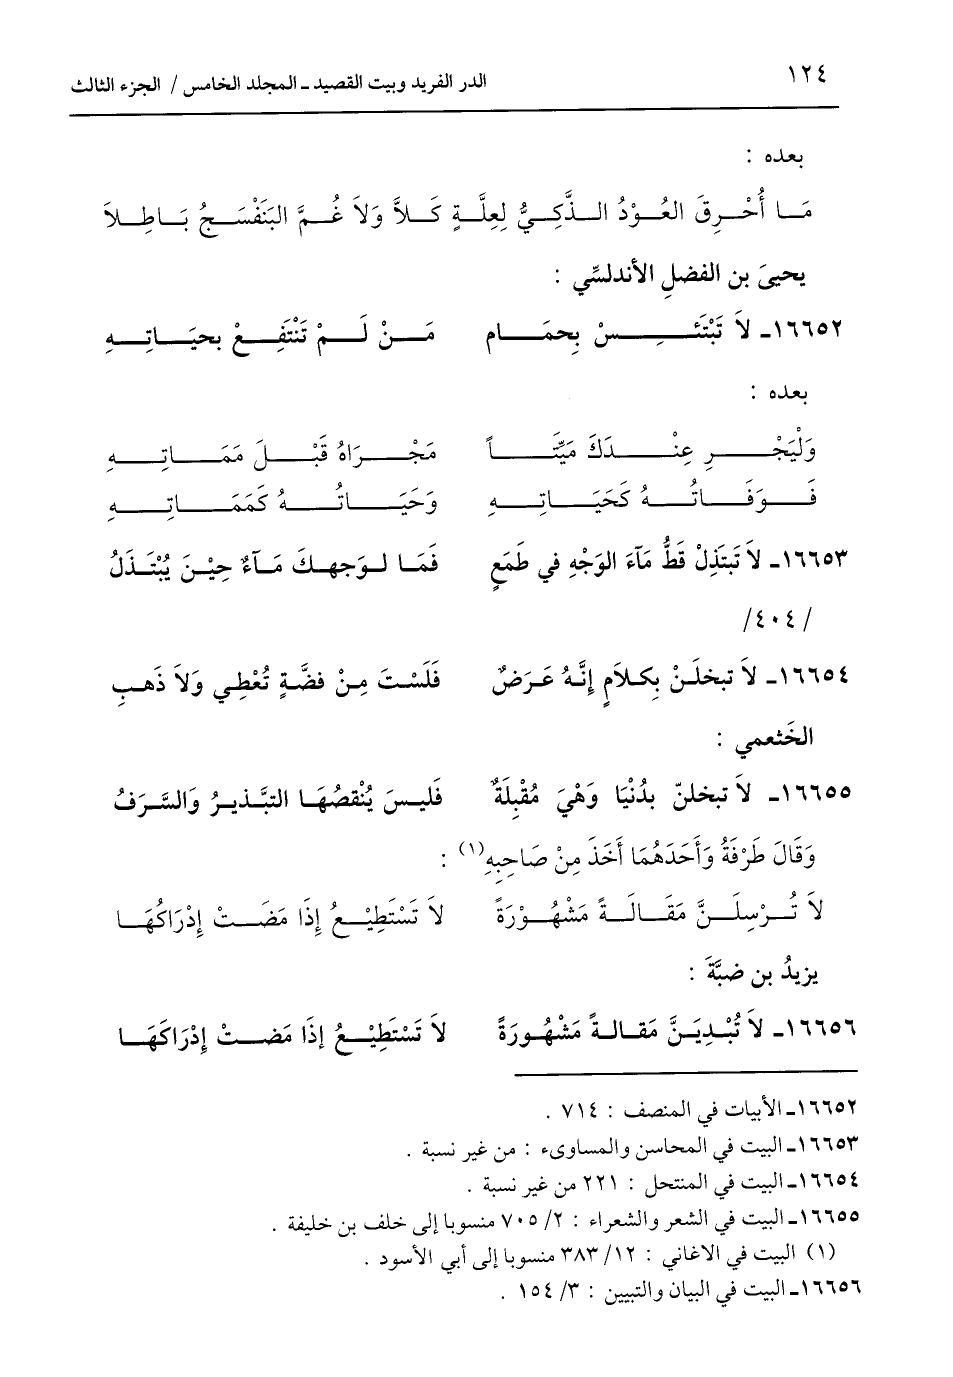 ١٢٤
الدر الفريد وبيت القصيد - المجلد الخامس / الجزء الثالث
بعده :
مَا أُحْرِقَ العُوْدُ الذَّكِيُّ لِعِلَّةٍ كَلاَّ وَلاَ غُمَّ البَنَفْسَجُ بَاطِلاَ
يحيىَ بن الفضلِ الأندلسِّي :
١٦٦٥٢- لاَ تَبْتَئِسْ بِحِمَامِ مَنْ لَمْ تَنْتَفِعْ بحيَاتِهِ
بعده :
وَلْيَجْرِ عِنْدَكَ مَيِّتَاً مَجْرَاهُ قَبْلَ مَمَاتِهِ
فَوفَاتُهُ كَحَيَاتِهِ وَحَيَاتُهُ كَمَمَاتِهِ
١٦٦٥٣- لاَ تَبتَذِلْ قَطُّ مَآءَ الوَجْهِ في طَمَعٍ فَمَا لوَجهِكَ مَآءٌ حِيْنَ يُبْتَذَلُ
/٤٠٤/
١٦٦٥٤- لاَ تبخلَنْ بِكلاَمٍ إنَّهُ عَرَضٌ فَلَسْتَ مِنْ فضَّةٍ تُعْطِي وَلاَ ذَهبِ
الخَثعمي :
١٦٦٥٥- لاَ تبخلنّ بدُنْيَا وَهْيَ مُقْبِلَةٌ فَليسَ يُنْقصُهَا التبَّذيرُ وَالسَّرَفُ
وَقَالَ طَرْفَةُ وَأَحَدَهُمَا أَخَذَ مِنْ صَاحِبِهِ(١) :
لاَ تُرْسِلَنَّ مَقَالَةً مَشْهُوْرَةً لاَ تَسْتَطِيْعُ إِذَا مَضَتْ إِدْرَاكُهَا
يزيدُ بن ضبَّةَ :
١٦٦٥٦- لاَ تُبْدِيَنَّ مَقالةً مَشْهُورَةً لاَ تَسْتَطِيْعُ إذَا مَضتْ إدْرَاكَهَا
١٦٦٥٢- الأبيات في المنصف : ٧١٤ .
١٦٦٥٣- البيت في المحاسن والمساوىء : من غير نسبة .
١٦٦٥٤- البيت في المنتحل : ٢٢١ من غير نسبة .
١٦٦٥٥- البيت في الشعر والشعراء : ٢/ ٧٠٥ منسوبا إلى خلف بن خليفة .
(١) البيت في الاغاني : ١٢/ ٣٨٣ منسوبا إلى أبي الأسود .
١٦٦٥٦- البيت في البيان والتبيين : ٣/ ١٥٤ .